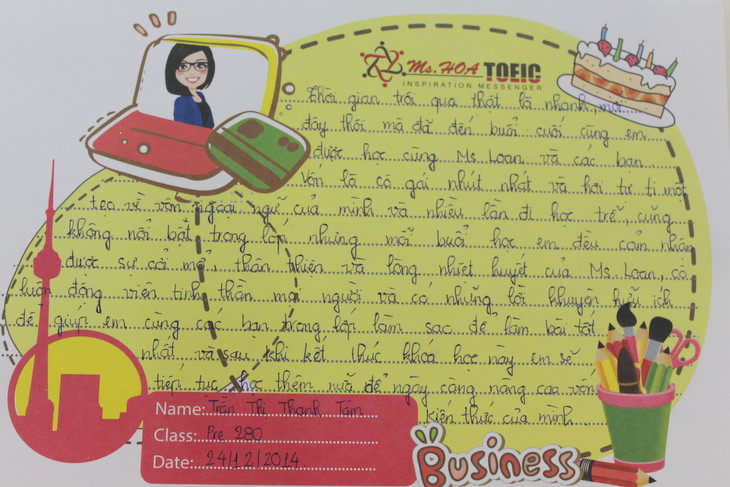 Ms. HOA TOEIC
INSPIRATION MESSENGER
Thời gian trôi qua thật là nhanh, mới
đây thôi mà đã đến buổi cuối cùng em
được học cùng Ms Loan và các bạn
Vốn là cô gái nhút nhát và hơi tự ti một
tẹo về vốn ngoại ngữ của mình và nhiều lần đi học trễ, cũng
không nổi bật trong lớp nhưng mỗi buổi học em đều cảm nhận
được sự cởi mở, thân thiện và lòng nhiệt huyết của Ms. Loan, cô
luôn động viên tinh thần mọi người và có những lời khuyên hữu ích
để giúp em cùng các bạn trong lớp làm sao để làm bài tốt
nhất và sau khi kết thúc khoá học này em sẽ
tiếp tục học thêm nữa để ngày càng nâng cao vốn
kiến thức của mình.
Name: Trần Thị Thanh Tâm
Class: Pre 280
Date: 24/12/2014
BUSINESS